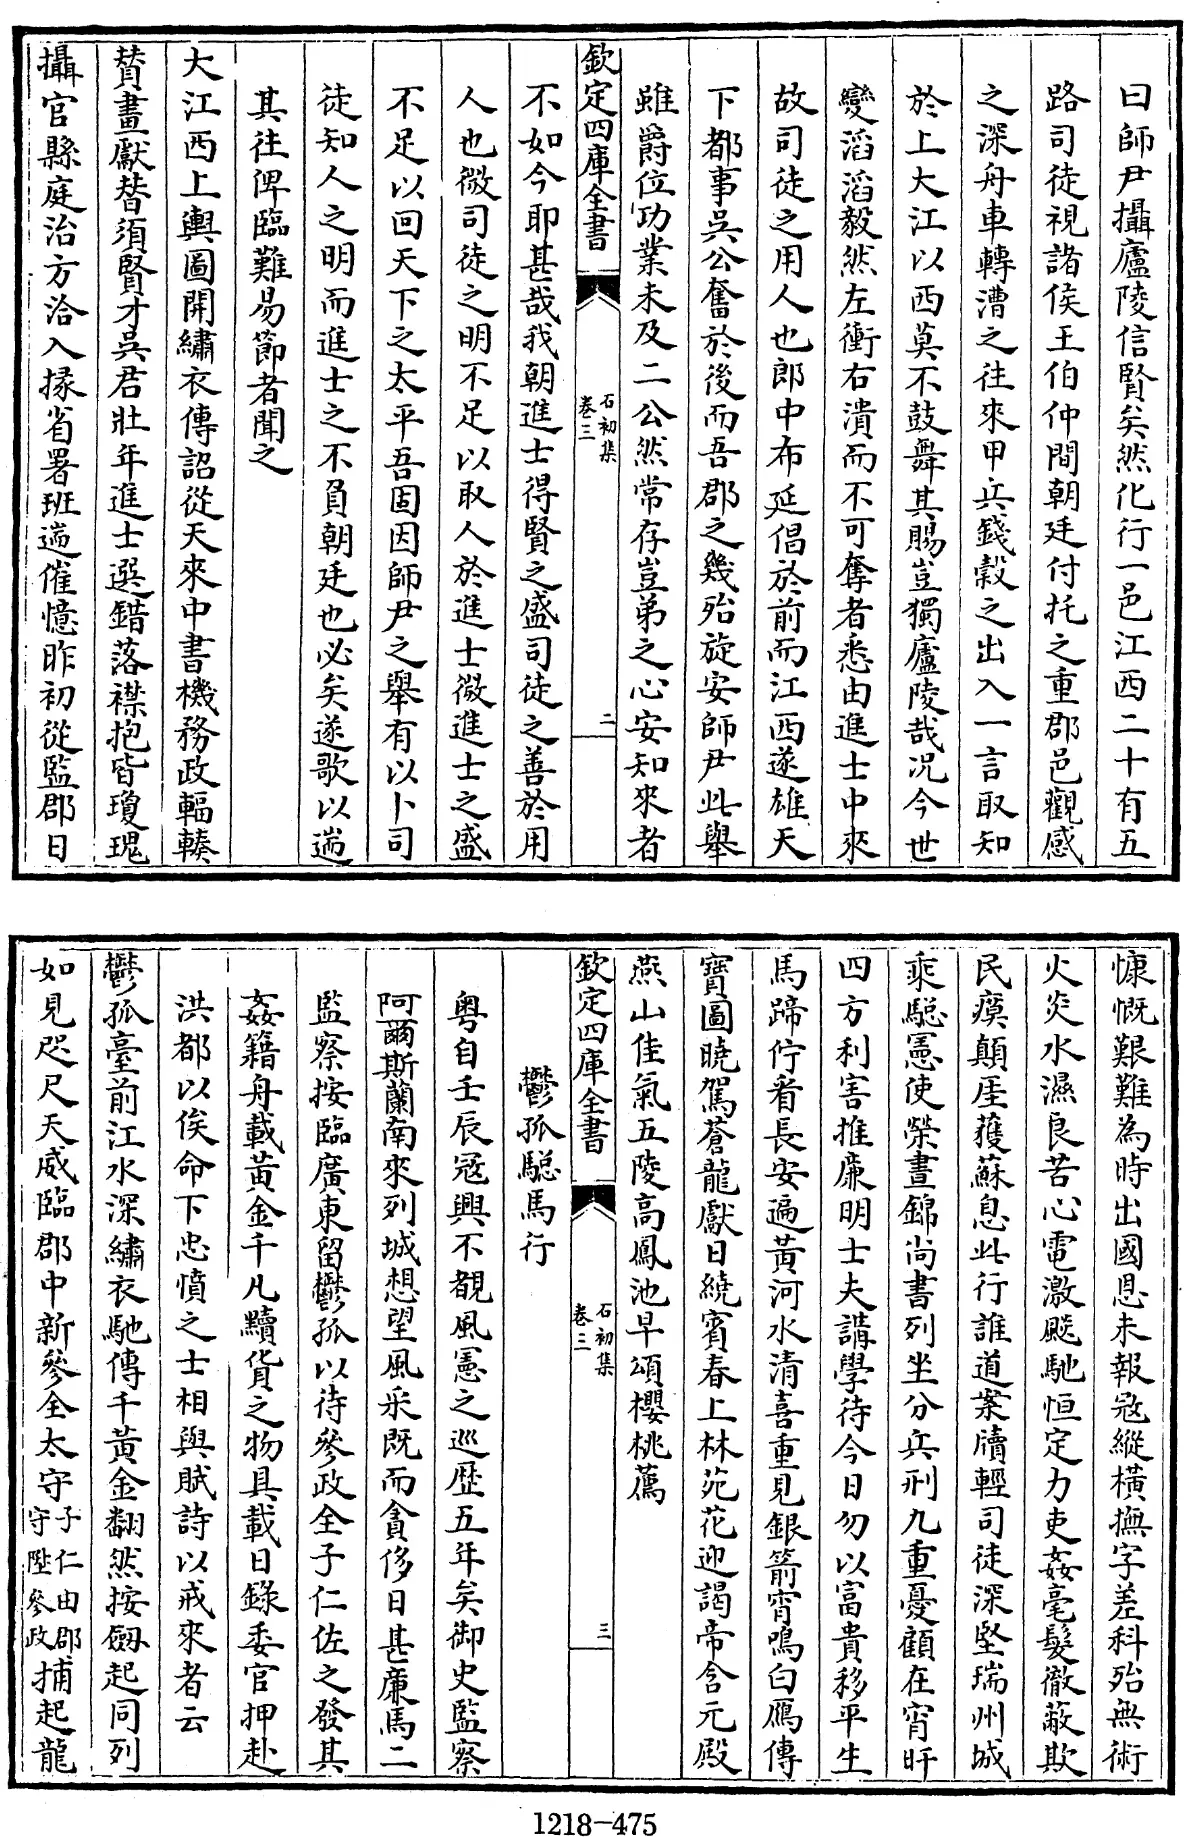 曰師尹攝廬陵信賢矣然化行一邑江西二十有五
路司徒視諸侯王伯仲間朝廷付托之重郡邑觀感
之深舟車轉漕之往來甲兵錢穀之出入一言取知
於上大江以西莫不鼓舞其賜豈獨廬陵哉况今世
變滔滔毅然左衝右潰而不可奪者悉由進士中來
故司徒之用人也郎中布延倡於前而江西遂雄天
下都事吳公奮於後而吾郡之幾殆旋安師尹此舉
雖爵位功業未及二公然常存豈弟之心安知來者
欽定四庫全書
石初集
卷三
二
不如今耶甚哉我朝進士得賢之盛司徒之善於用
人也微司徒之明不足以取人於進士微進士之盛
不足以回天下之太平吾固因師尹之舉有以卜司
徒知人之明而進士之不負朝廷也必矣遂歌以遄
其往俾臨難易節者聞之
大江西上輿圖開繡衣傳詔從天來中書機務政輻輳
贊畫獻替須賢才吳君壯年進士選錯落襟抱皆瓊瑰
攝官縣庭治方洽入掾省署班遄催憶昨初從監郡日
慷慨艱難為時出國恩未報寇縱橫撫字差科殆無術
火炎水濕良苦心電激颷馳恒定力吏姦毫髮徹蔽欺
民瘼顛厓獲蘇息此行誰道案牘輕司徒深堅瑞州城
乘驄憲使榮晝錦尚書列坐分兵刑九重憂顧在宵旰
四方利害推廉明士夫講學待今日勿以富貴移平生
馬蹄佇看長安遍黃河水清喜重見銀箭宵鳴白鴈傳
寶圖曉駕蒼龍獻日繞賓春上林苑花迎謁帝含元殿
燕山佳氣五陵高鳳池早頌櫻桃薦
欽定四庫全書
石初集
卷三
三
鬱孤驄馬行
粤自壬辰寇興不覩風憲之巡歷五年矣御史監察
阿爾斯蘭南來列城想望風采既而貪侈日甚廉馬二
監察按臨廣東留鬱孤以待參政全子仁佐之發其
姦籍舟載黃金千凡黷貨之物具載日錄委官押赴
洪都以俟命下忠憤之士相與賦詩以戒來者云
鬱孤臺前江水深繡衣馳傳千黃金翻然按劒起同列
如見咫尺天威臨郡中新參全太守子仁由郡守陞參政捕起龍
1218-475